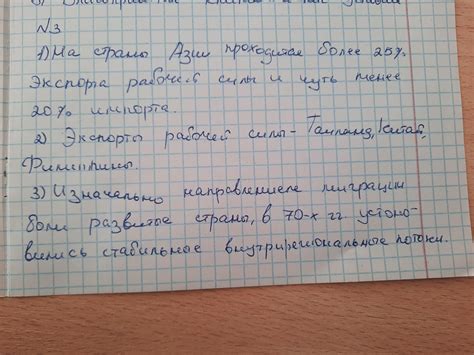 N3
1) На страны Азии проходится более 25%
экспорта рабочей силы и чуть менее
20% импорта.
2) Экспорты рабочей силы - Таиланд, Китай,
Филиппины.
3) Изначально направлением миграции
были развитые страны, в 70-х гг устоно-
вились стабильное внутрирегиональные потоки.